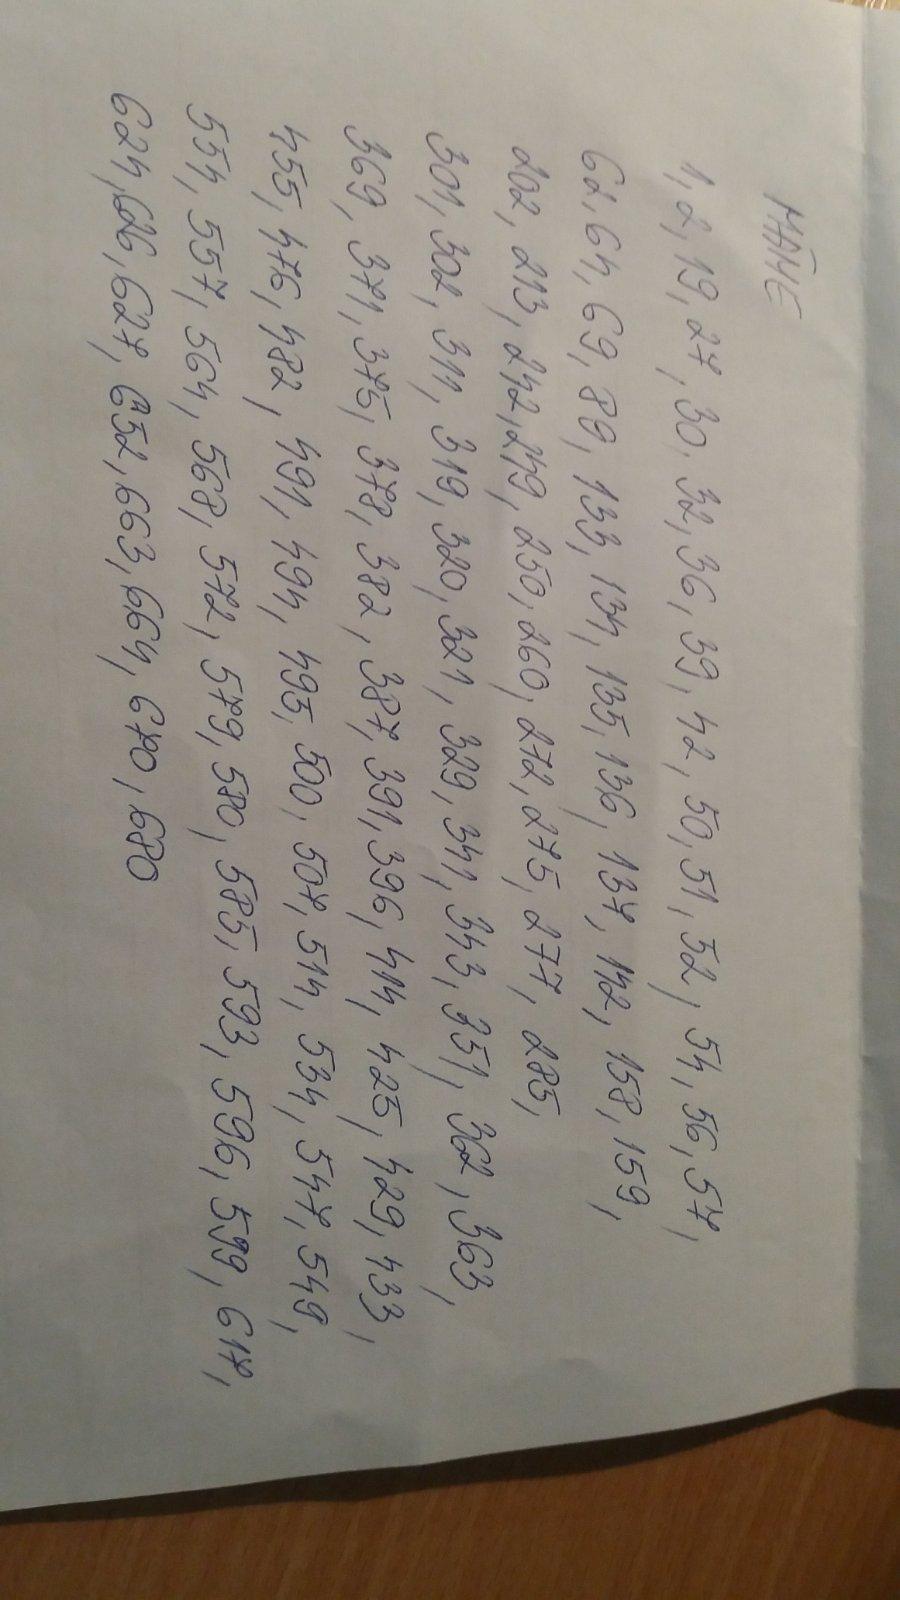 МАЙЖЕ
1, 2, 19, 27, 30, 32, 36, 39, 42, 50, 51, 52, 54, 56, 57,
62, 64, 69, 89, 133, 134, 135, 136, 137, 142, 158, 159,
202, 213, 242, 249, 250, 260, 272, 275, 277, 285,
301, 302, 311, 319, 320, 321, 329, 341, 343, 351, 362, 363,
369, 371, 375, 378, 382, 387, 391, 396, 414, 425, 429, 433,
455, 476, 482, 491, 494, 495, 500, 507, 514, 534, 547, 549,
554, 557, 564, 568, 572, 579, 580, 585, 593, 596, 599, 617,
624, 626, 627, 652, 663, 664, 670, 680